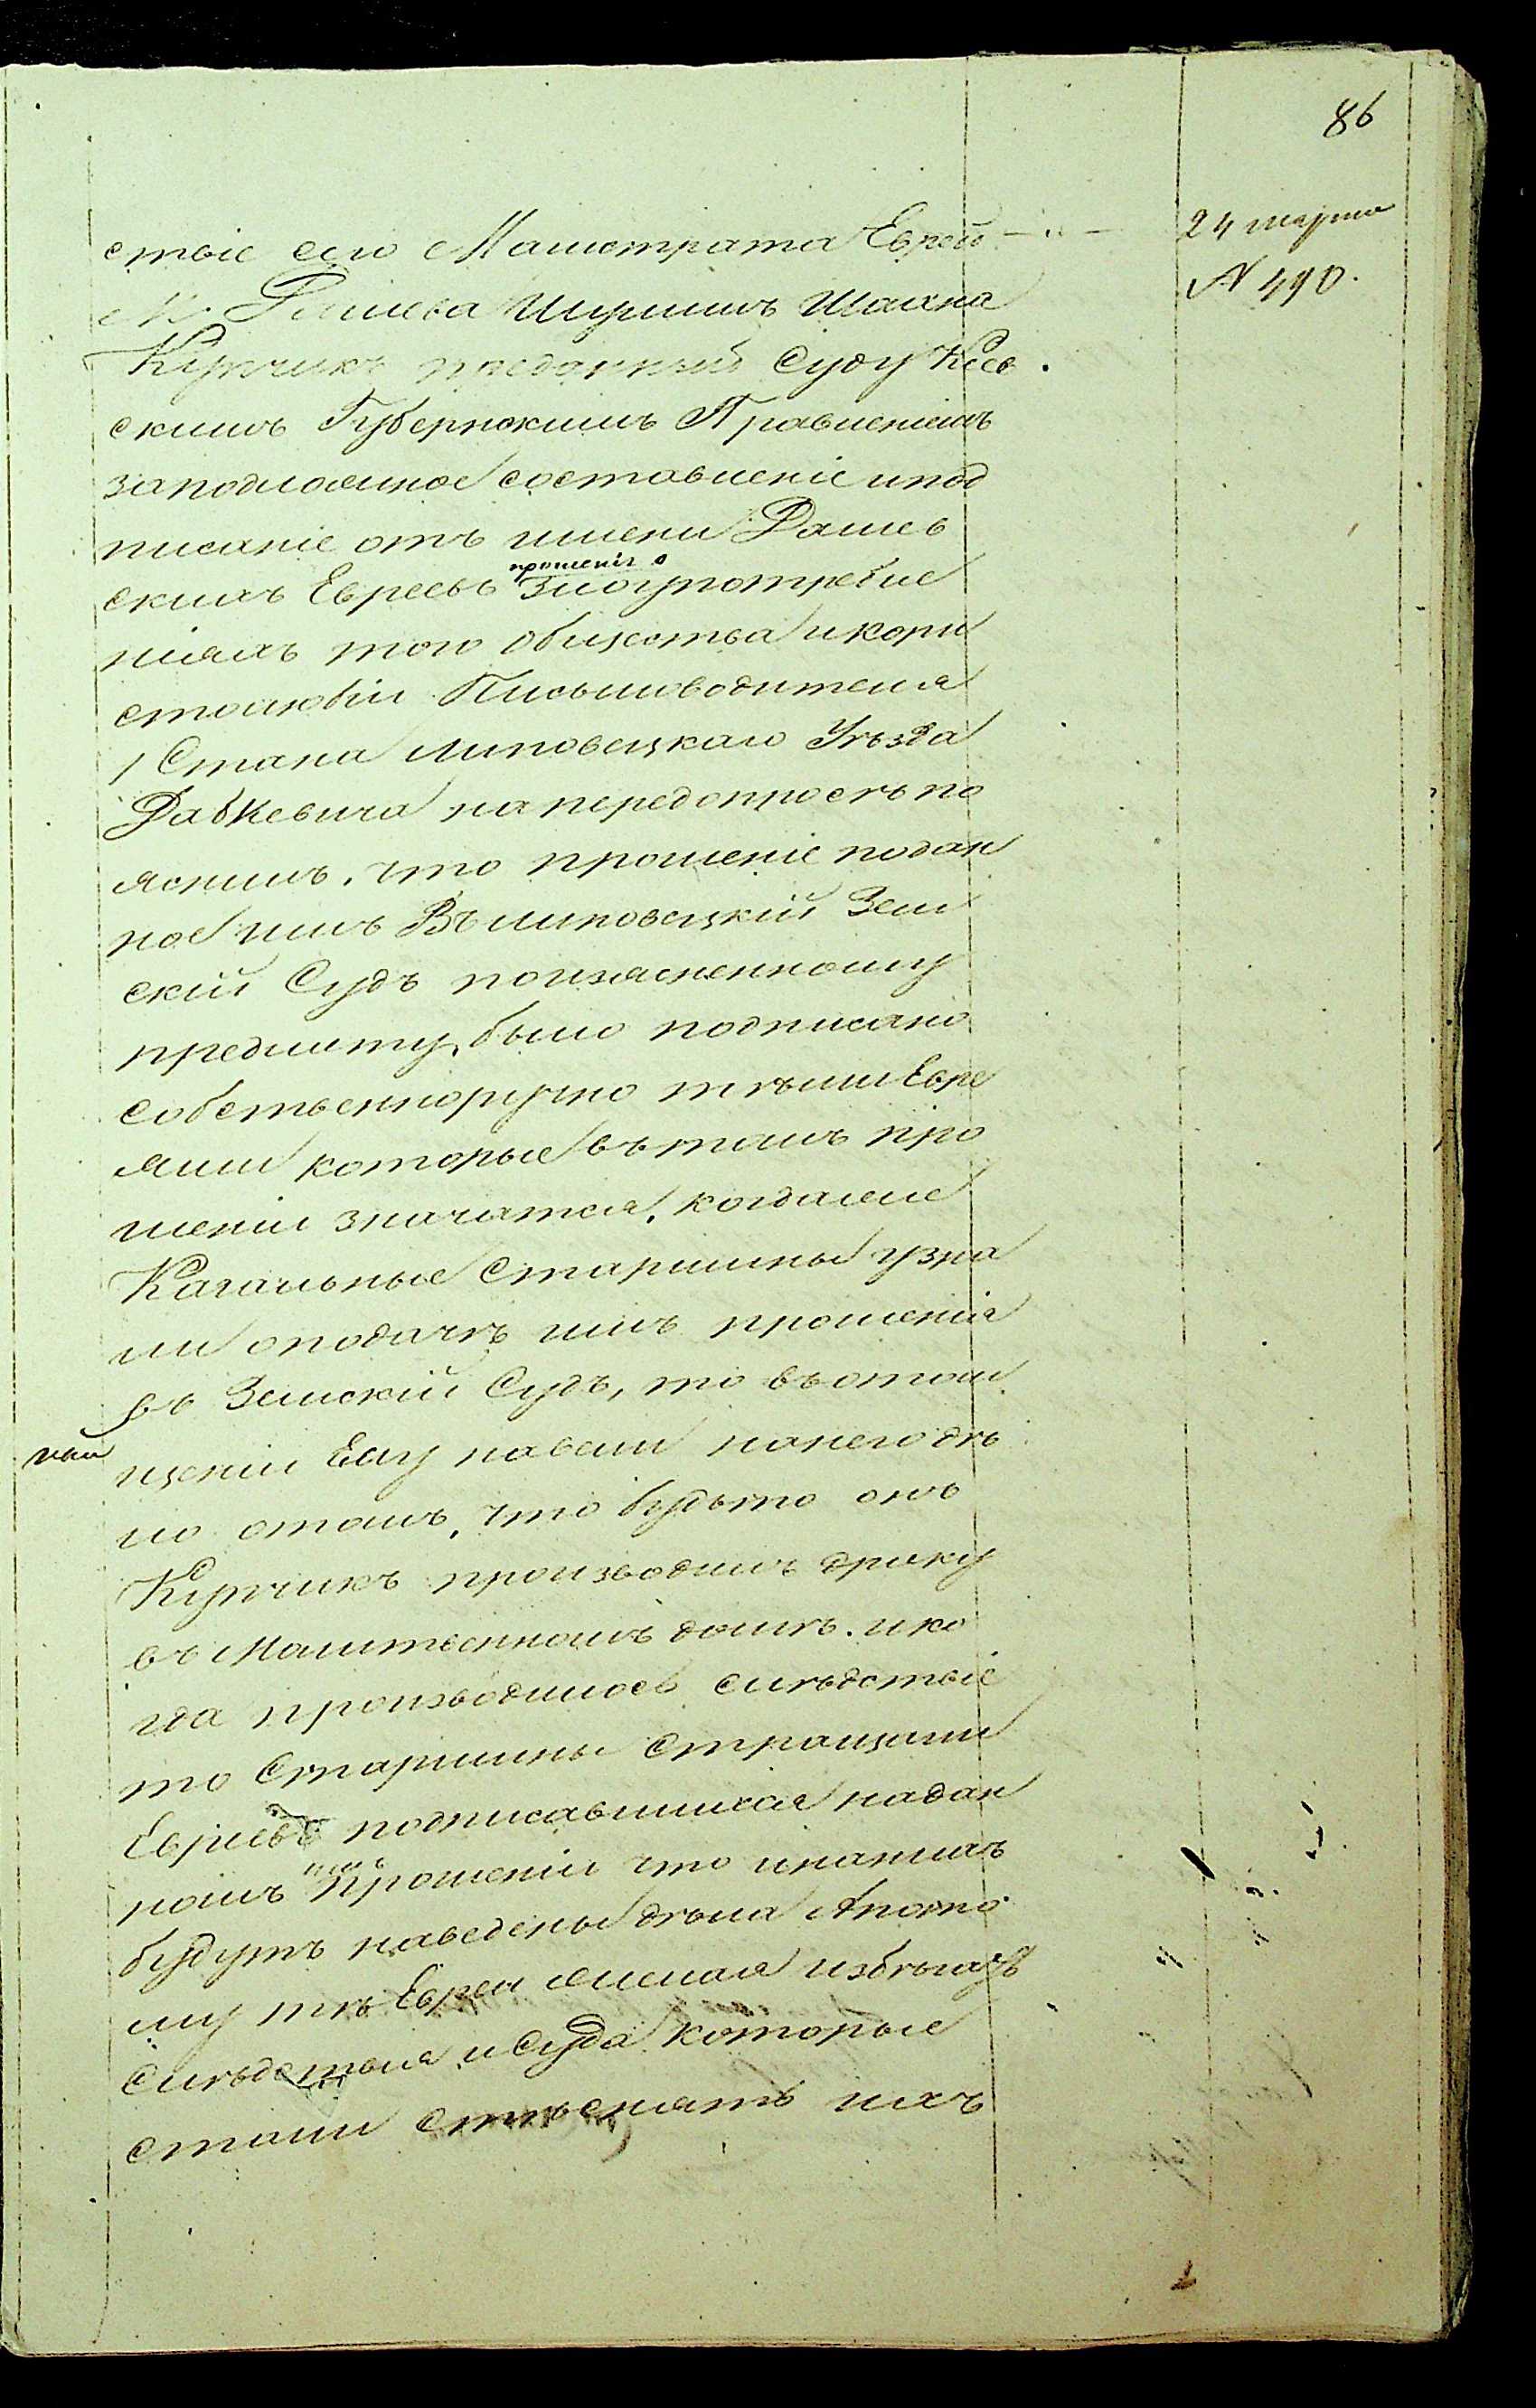 86
24 марта
№ 490.
ствіе сего Магистрата Еврей — " —
М. Дашева Шулимъ Шахна
Купчикъ преданный Суду Кіев
скимъ Губернскимъ Правленіемъ
за подложное составленіе и под
писаніе отъ имени Дашев
скихъ Евреевъ прошенія о Злоупотребле
ніяхъ того общества и коры
столюбіи Письмоводителя
1 Стана Липовецкаго Уѣзда
на передопросѣ по
яснилъ, что прошеніе подан
ное имъ Въ Липовецкій Зем
скій Судъ по изясненному
предмету, было подписано
собственноручно тѣми Евре
ями которые въ томъ про
шеніи значатся, когда же
Кагальные Старшины узна
ли о подачѣ имъ прошенія
въ Земскій Судъ, то въ отом
щеніи Ему навели на него дѣ
ло о томъ, что будьто онъ
Купчикъ производилъ драку
въ Молитвенномъ домѣ. и ко
гда производилось слѣдствіе
то Старшины стращали
Евреевъ подписавшихся на дан
номъ имъ Прошеніи что и на нихъ
будутъ наведены дѣла А пото
му тѣ Евреи желая избѣгать
слѣдствія и Суда которые
стали стѣснять ихъ